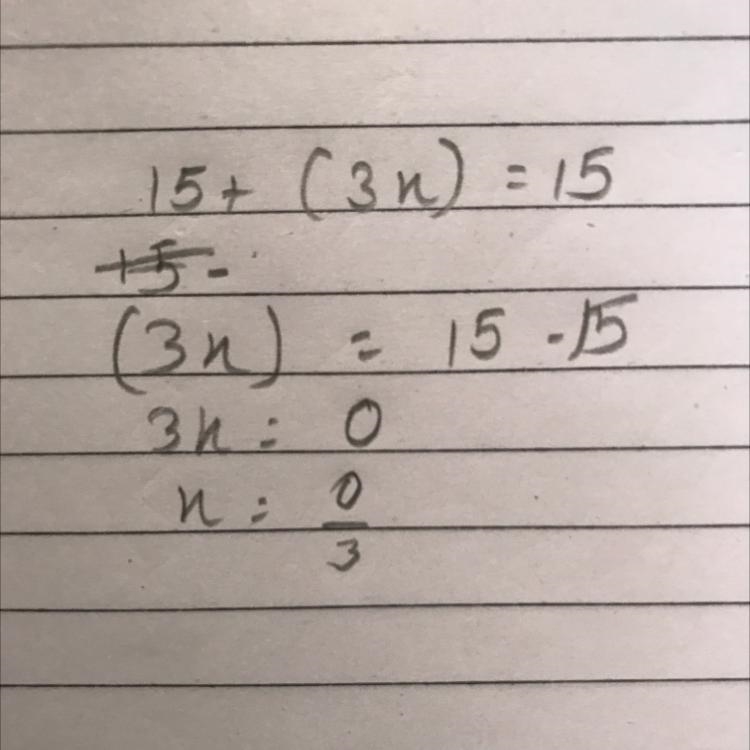 15 + (3n) = 15
(3n) = 15 - 15
3n = 0
n = 0/3